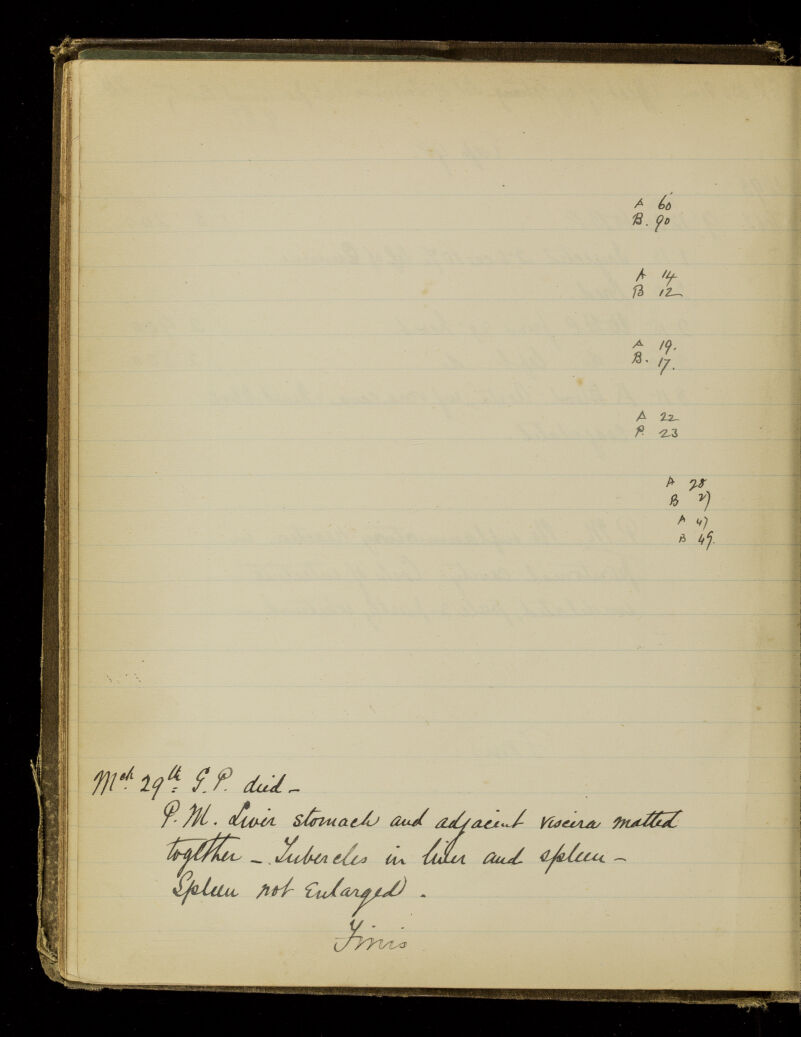 A 60
B. 90
A 14
B 12
A 19.
B. 17.
A 22
B 23
A 28
B 27
A 47
B 49.
Mch 29th G.P. died –
P.M. Liver stomach and adjacent viscera matted
together – Tubercles in liver and spleen –
Spleen not Enlarged.
Finis